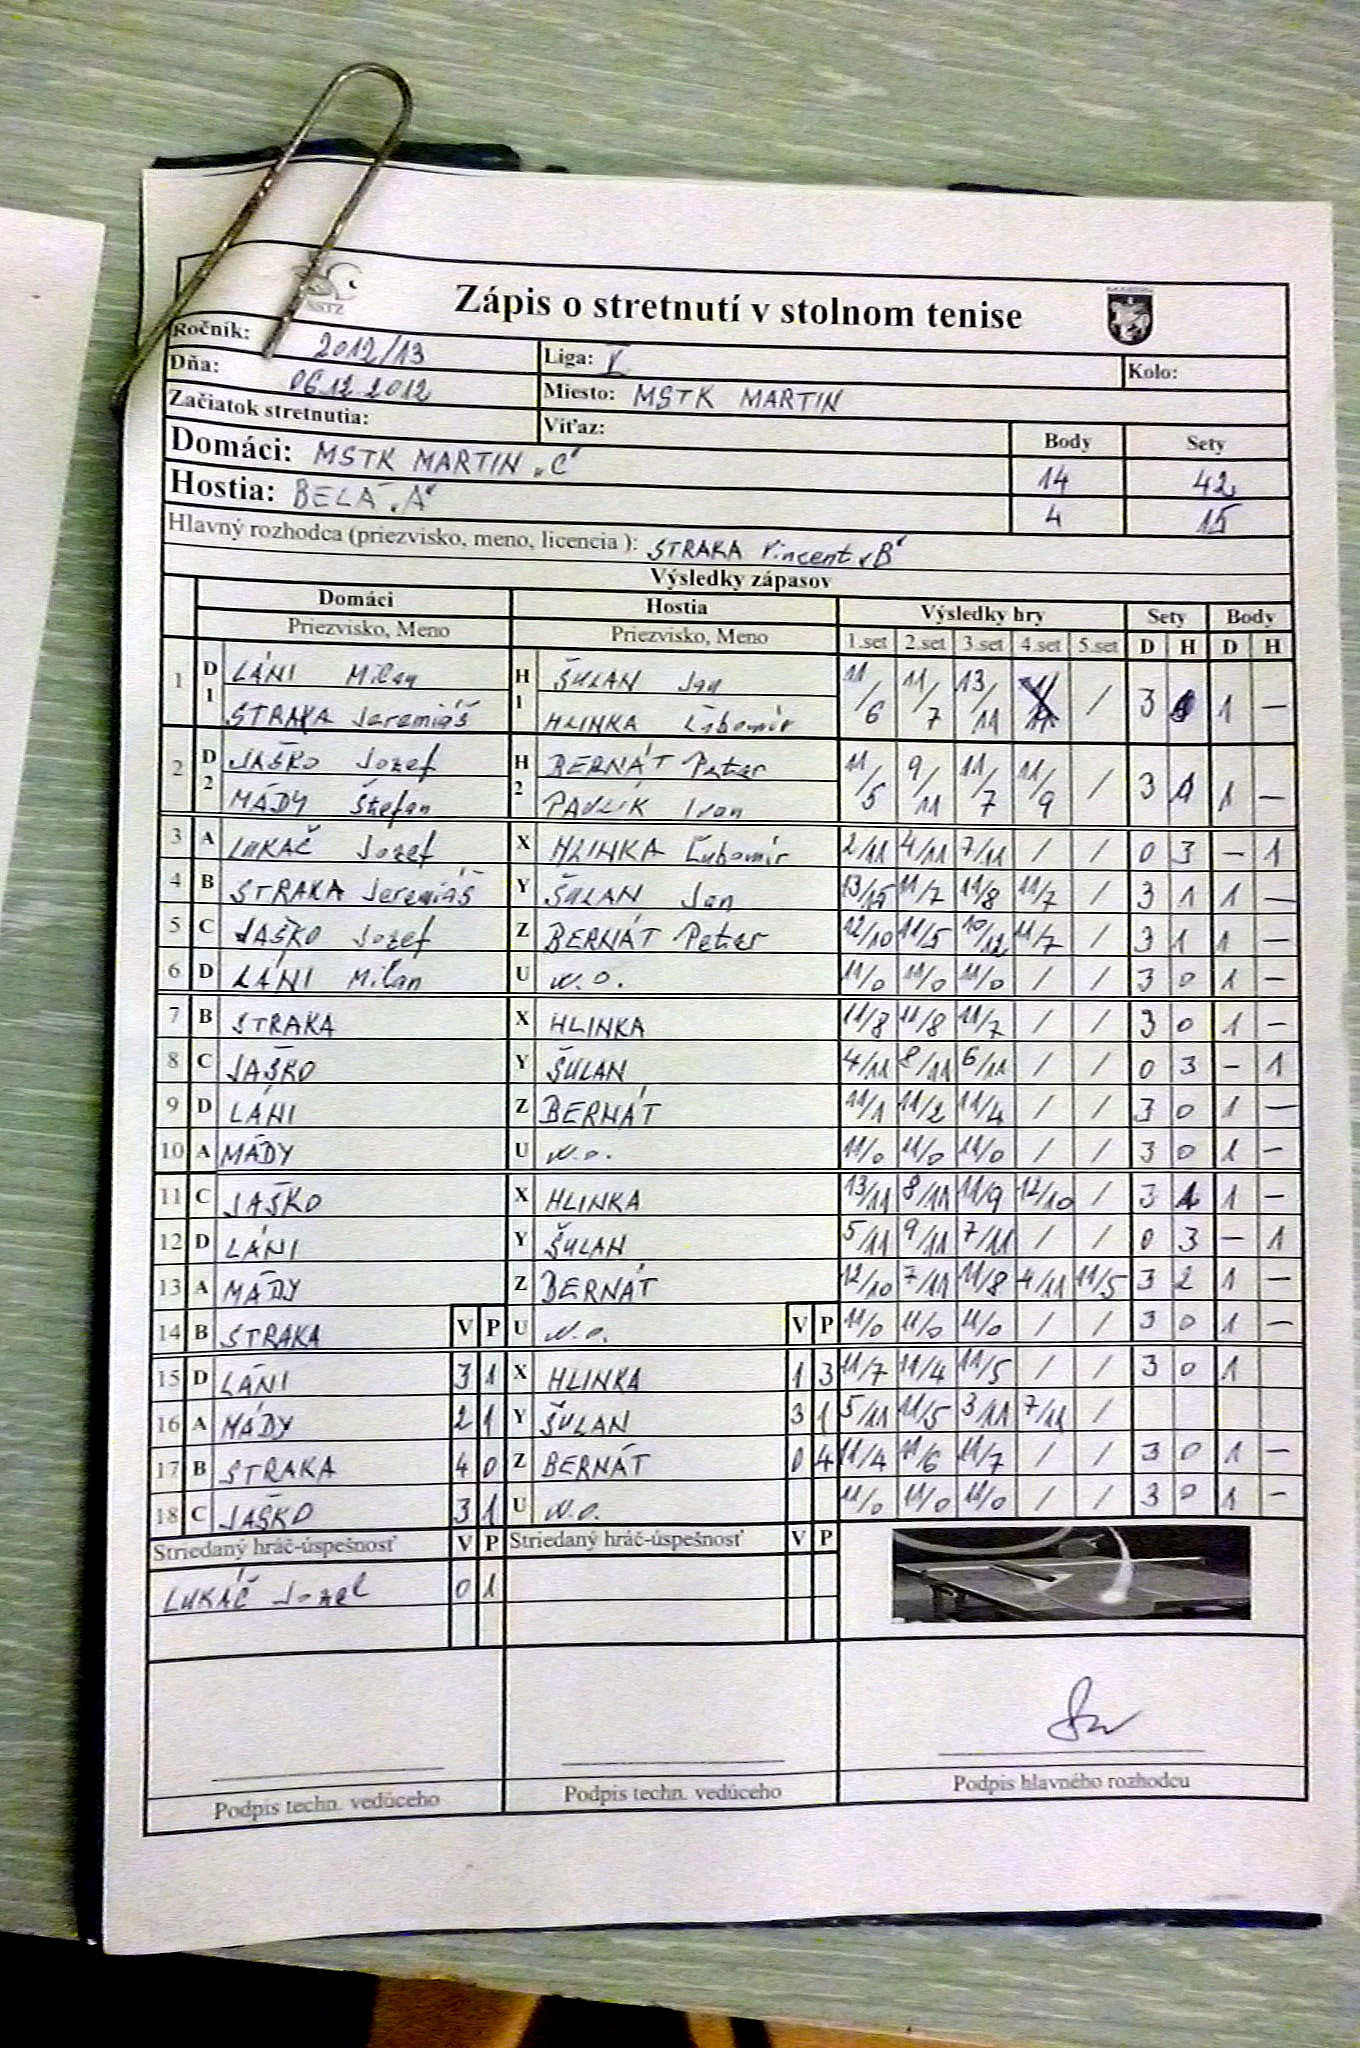 SSTZ
Zápis o stretnutí v stolnom tenise
MARTIN
Ročník: 2012/13 Liga: I. Kolo:
Dňa: 06.12.2012 Miesto: MSTK MARTIN
Začiatok stretnutia: Víťaz: Body Sety
Domáci: MSTK MARTIN „C" 14 42
Hostia: BELÁ „A" 4 15
Hlavný rozhodca (priezvisko, meno, licencia ): STRAKA Vincent „B"
Výsledky zápasov
Domáci Hostia Výsledky hry Sety Body
Priezvisko, Meno Priezvisko, Meno 1.set 2.set 3.set 4.set 5.set D H D H
1 D1 LÁNI Milan H1 ŠULAN Jan 11/6 11/7 13/11 / 3 1 —
STRAKA Jeremiáš HLINKA Ľubomír
2 D2 JAŠKO Jozef H2 BERNÁT Peter 11/5 9/11 11/7 11/9 / 3 1 1 —
MÁDY Štefan PAVLÍK Ivan
3 A LUKÁČ Jozef X HLINKA Ľubomír 2/11 4/11 7/11 / / 0 3 — 1
4 B STRAKA Jeremiáš Y ŠULAN Jan 13/15 11/7 11/8 11/7 / 3 1 1 —
5 C JAŠKO Jozef Z BERNÁT Peter 12/10 11/5 10/12 11/7 / 3 1 1 —
6 D LÁNI Milan U w.o. 11/0 11/0 11/0 / / 3 0 1 —
7 B STRAKA X HLINKA 11/8 11/8 11/7 / / 3 0 1 —
8 C JAŠKO Y ŠULAN 4/11 8/11 6/11 / / 0 3 — 1
9 D LÁNI Z BERNÁT 11/1 11/2 11/4 / / 3 0 1 —
10 A MÁDY U w.o. 11/0 11/0 11/0 / / 3 0 1 —
11 C JAŠKO X HLINKA 13/11 8/11 11/9 12/10 / 3 1 1 —
12 D LÁNI Y ŠULAN 5/11 9/11 7/11 / / 0 3 — 1
13 A MÁDY Z BERNÁT 12/10 7/11 11/8 4/11 11/5 3 2 1 —
14 B STRAKA V P U w.o. V P 11/0 11/0 11/0 / / 3 0 1 —
15 D LÁNI 3 1 X HLINKA 1 3 11/7 11/4 11/5 / / 3 0 1
16 A MÁDY 2 1 Y ŠULAN 3 1 5/11 11/5 3/11 7/11 /
17 B STRAKA 4 0 Z BERNÁT 0 4 11/4 11/6 11/7 / / 3 0 1 —
18 C JAŠKO 3 1 U w.o. 11/0 11/0 11/0 / / 3 0 1 —
Striedaný hráč-úspešnosť V P Striedaný hráč-úspešnosť V P
LUKÁČ Jozef 0 1
Podpis techn. vedúceho Podpis techn. vedúceho Podpis hlavného rozhodcu